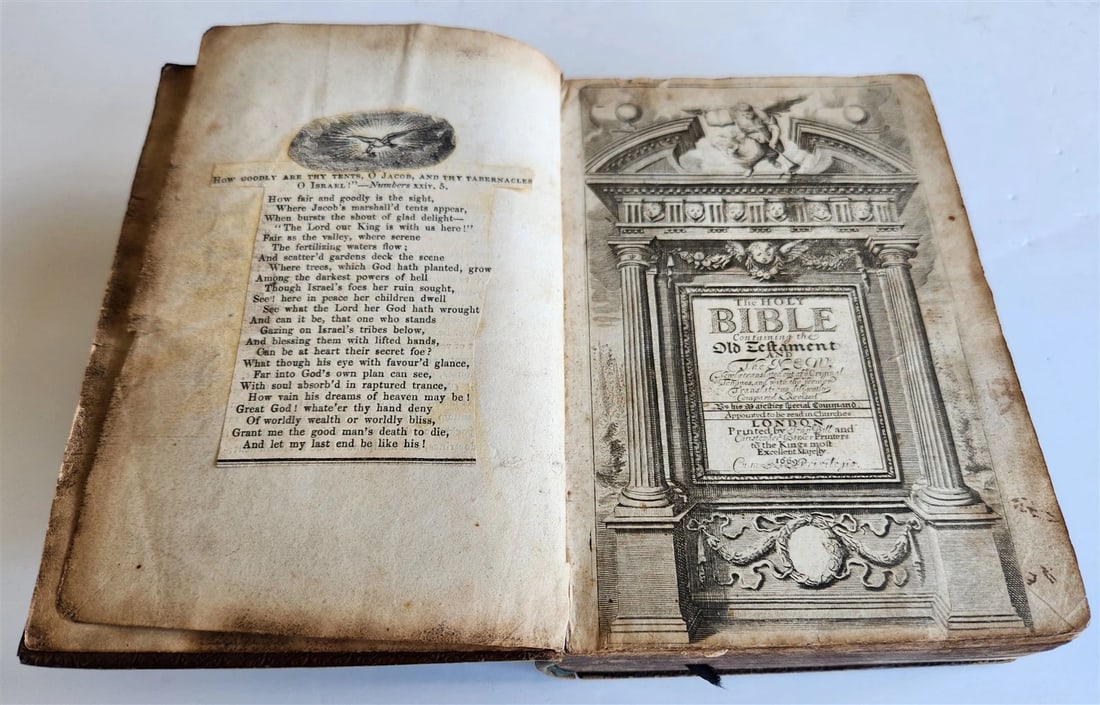 How goodly are thy tents, O Jacob, and thy tabernacles
O Israel!"—Numbers xxiv. 5.
How fair and goodly is the sight,
Where Jacob's marshall'd tents appear,
When bursts the shout of glad delight—
"The Lord our King is with us here!"
Fair as the valley, where serene
The fertilizing waters flow;
And scatter'd gardens deck the scene
Where trees, which God hath planted, grow
Among the darkest powers of hell
Though Israel's foes her ruin sought,
See! here in peace her children dwell
See what the Lord her God hath wrought
And can it be, that one who stands
Gazing on Israel's tribes below,
And blessing them with lifted hands,
Can be at heart their secret foe?
What though his eye with favour'd glance,
Far into God's own plan can see,
With soul absorb'd in raptured trance,
How vain his dreams of heaven may be!
Great God! whate'er thy hand deny
Of worldly wealth or worldly bliss,
Grant me the good man's death to die,
And let my last end be like his!
The HOLY
BIBLE
Containing the
Old Testament
AND
The NEW
Translations diligently
Compared & Revised
By his Majesties special Command
Appointed to be read in Churches
LONDON
Printed by John Bill and
Christopher Barker Printers
to the Kings most
Excellent Majesty
1669
Cum Privilegio